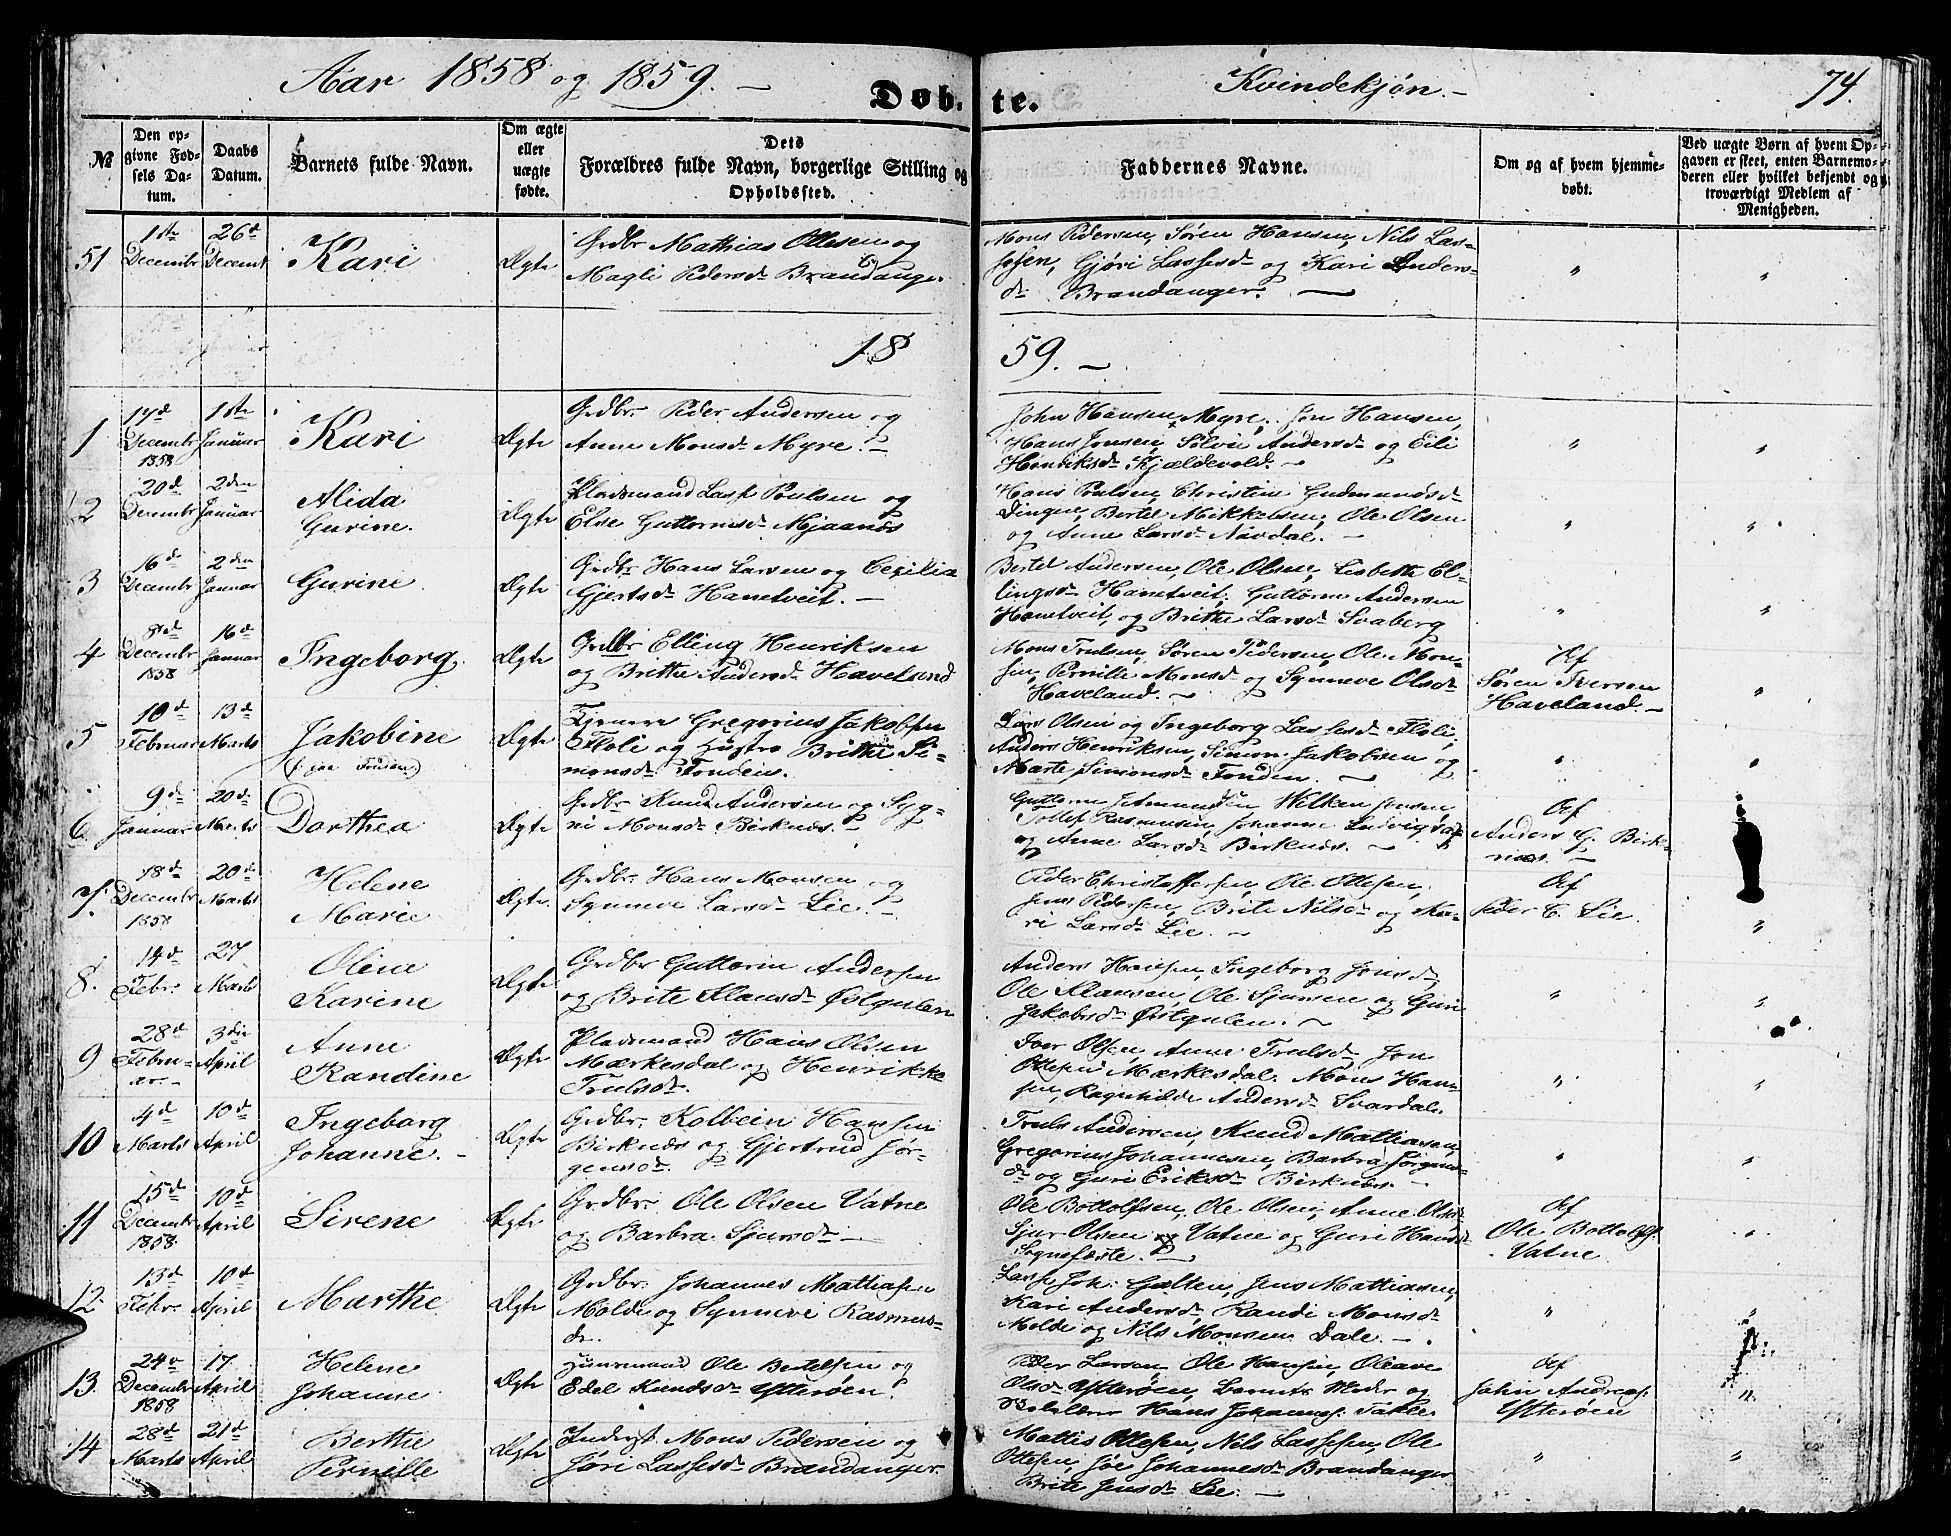 Aar 1858 og 1859. –
Døbte.
Kvindekjøn. –
74.
№
Den opgivne Fødsels Datum.
Daabs Datum.
Barnets fulde Navn.
Om ægte eller uægte fødte.
Dets Forældres fulde Navn, borgerlige Stilling og Opholdssted.
Faddernes Navne.
Om og af hvem hjemmedøbt.
Ved uægte Børn af hvem Opgaven er skeet, enten Barnemoderen eller hvilket bekjendt og troværdigt Medlem af Menigheden.
51
1ste Decembr
26de Decembr
Kari
Ægte
Grdbr Mathias Ottesen og
Magli Pedersdr Brandanger.
Mons Pedersen, Søren Hansen, Nils Las-
sesen, Gjøri Lassesdr og Kari Anders-
dr Brandanger. –
" "
1859. –
1
17d Decembr 1858
1ste Januar
Kari
Ægte
Grdbr. Peder Andersen og
Anne Monsdr Myre. –
John Hansen Myre, Jon Hansen,
Hans Jonsen, Sølvie Andersdr og Eili
Henriksdr Kjældevold. –
" "
2
20d Decembr
2den Januar
Alida
Gurine.
Ægte
Pladsmand Lasse Poulsen og
Else Guttormsdr Mjaanes
Hans Poulsen, Christine Gudmundsdr
Dingen, Bertel Mikkelsen, Ole Olsen
og Anne Larsdr Nävdal. –
" "
3
16d Decembr
2den Januar
Gurine
Ægte
Grdbr Hans Larsen og Cecilia
Gjertsdr Hantveit. –
Bertel Andersen, Ole Olsen, Lisbeth El-
lingsdr Hantveit, Guttorm Andersen
Hantveit, og Brithe Larsdr Svaberg
" "
4
8de Decembr 1858
16d Januar
Ingeborg
Ægte
Grdbr Elling Henriksen
og Brithe Andersdr Haveland
Mons Trulsen, Søren Pedersen, Ole Mon-
sen, Pernille Monsdr og Synneve Olsdr
Haveland. –
Af
Søren Iversen
Haveland. –
"
5
10d Februar
13d Marts
Jakobine
Ægte
Tjener Gregorius Jakobsen
Floli og Hustro Brithe Si-
monsdr Tonden.
Lars Olsen og Ingeborg Lassesdr Floli,
Anders Henriksen, Simon Jakobsen og
Marte Simonsdr Tonden. –
" "
6.
9de Januar
20de Marts
Dorthea
Ægte
Grdbr Knut Andersen og Syg-
ni Monsdr Birknæs. –
Guttorm Wilken
Tollef Rasmussen, Johanne Ludvigsdr
og Anne Larsdr Birknæs. –
Af
Anders G. Birk-
næs. –
7.
18d Decembr 1858
20de Marts
Helene
Marie
Ægte.
Grdbr. Hans Monsen og
Synneve Larsdr Lie. –
Peder Christoffersen, Ole Ottesen,
Jens Pedersen, Brite Nilsdr og Ka-
ri Larsdr Lie. –
Af
Peder C. Lie.
"
8.
14d Febr.
27 Marts
Oline
Karine
Ægte
Grdbr Guttorm Andersen
og Brite Klausdr Østgulen
Anders Hansen, Ingeborg Jonsdr,
Ole Klausen, Ole Sjursen og Guri
Jakobsdr Østgulen. –
" "
9
28d Februar –
3die April
Anne
Randine
Ægte
Pladsmand Hans Olsen
Mærkesdal og Henrikke
Trulsdr.
Iver Olsen, Anne Trulsdr, Jon
Ottesen Mærkesdal. Mons Han-
sen, Ragnhilde Andersdr Svardal.
" "
10
4d Marts
10d April
Ingeborg
Johanne. –
Ægte
Grdbr. Kolbein Hansen
Birknæs og Gjertrud Jør-
gensdr.
Truls Andersen, Knud Mathiasen,
Gregorius Johannesen, Barbra Jørgens-
dr og Guri Eriksdr Birknæs. –
" "
11
15d Decembr 1858
10d April
Sirene
Ægte
Grdbr. Ole Olsen Vatne
og Barbra Sjursdr –
Ole Bottolfsen, Ole Olsen, Anne Olsdr
Sjur Olsen Vatne og Guri Hansdr
Sognefæste. –
Af
Ole Bottolfs.
Vatne
"
12
13d Febr.
10d April
Marthe
Ægte
Grdbr. Johannes Mathiasen
Molde og Synneve Rasmus-
dr.
Lasse Joh. Galten, Jens Mathiasen,
Kari Andersdr, Randi Monsdr
Molde og Nils Monsen Dale. –
" "
13.
24d Decembr 1858
17 April
Helene
Johanne
Ægte
Huusmand Ole Bertelsen og
Edel Knudsdr Ytterøen.
Peder Larsen, Ole Hansen, Oleave
Olsdr Ytterøen, Barnets Moder og
Hans Johannes. Takle.
Af
John Andreas.
Ytterøen
"
14
28d Marts
21d April
Berthe
Pernille
Ægte
Inderst Mons Pedersen og
Jøri Lassesdr Brandanger.
Mattis Ottesen, Nils Lassesen, Ole
Ottesen, Johannesdr Brandanger
Brite Jensdr Lie. –
" "